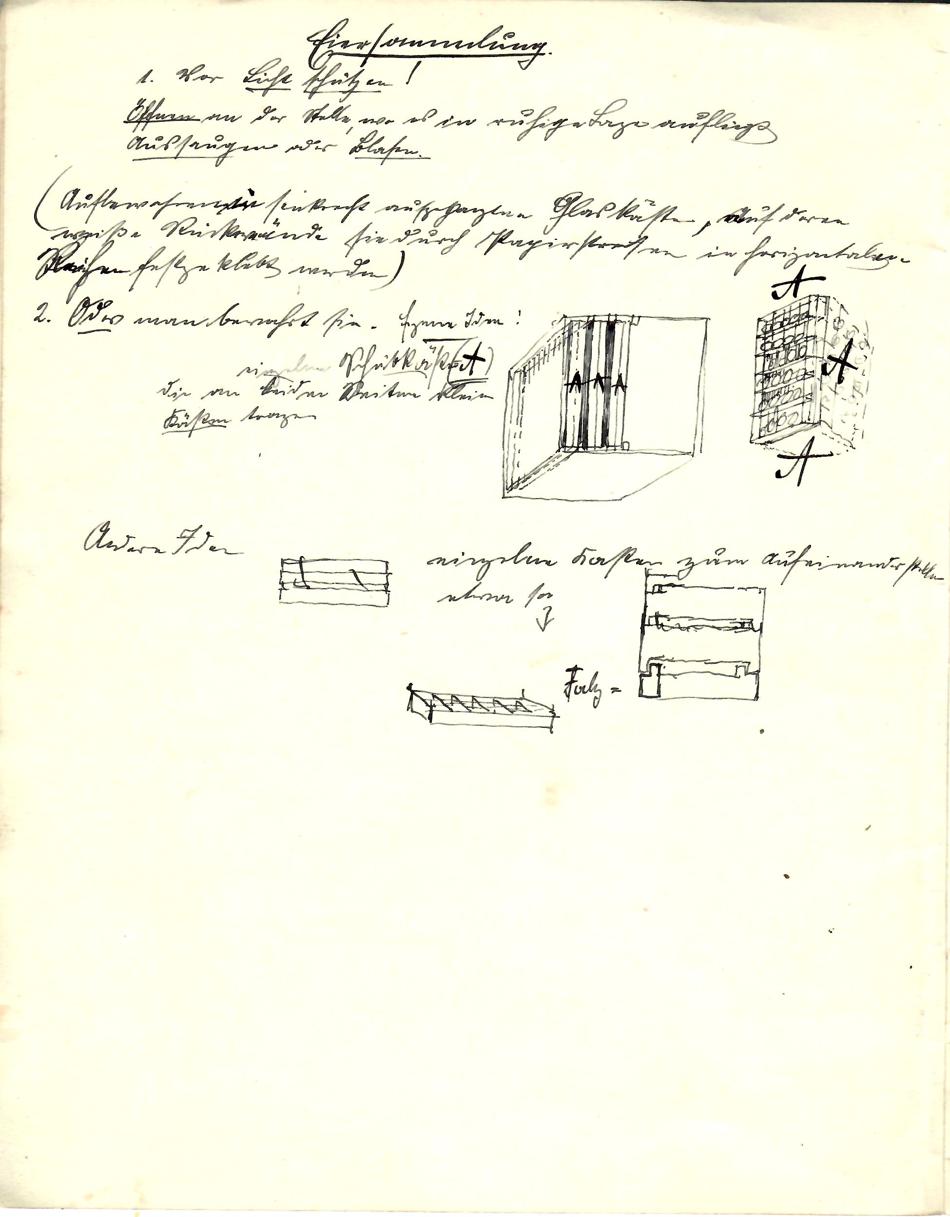 Eiersammlung.
1. Vor Licht schützen!
Öffnen an der Stelle, wo es in ruhige Lage aufliegt
Aussaugen oder Blasen.
(Aufbewahren in senkrecht aufgehangene Glaskästen, auf deren
weiße Rückwände sie durch Papierstreifen in horizontalen
Reihen festgeklebt werden)
2. Oder man bewahrt sie. Eigene Idee!
einzelne (A)
die an beiden Seiten kleine
Kästen tragen
A A A
A
A
A
Andere Idee
einzelne Kasten zum Aufeinanderstellen
etwa so
Falz =